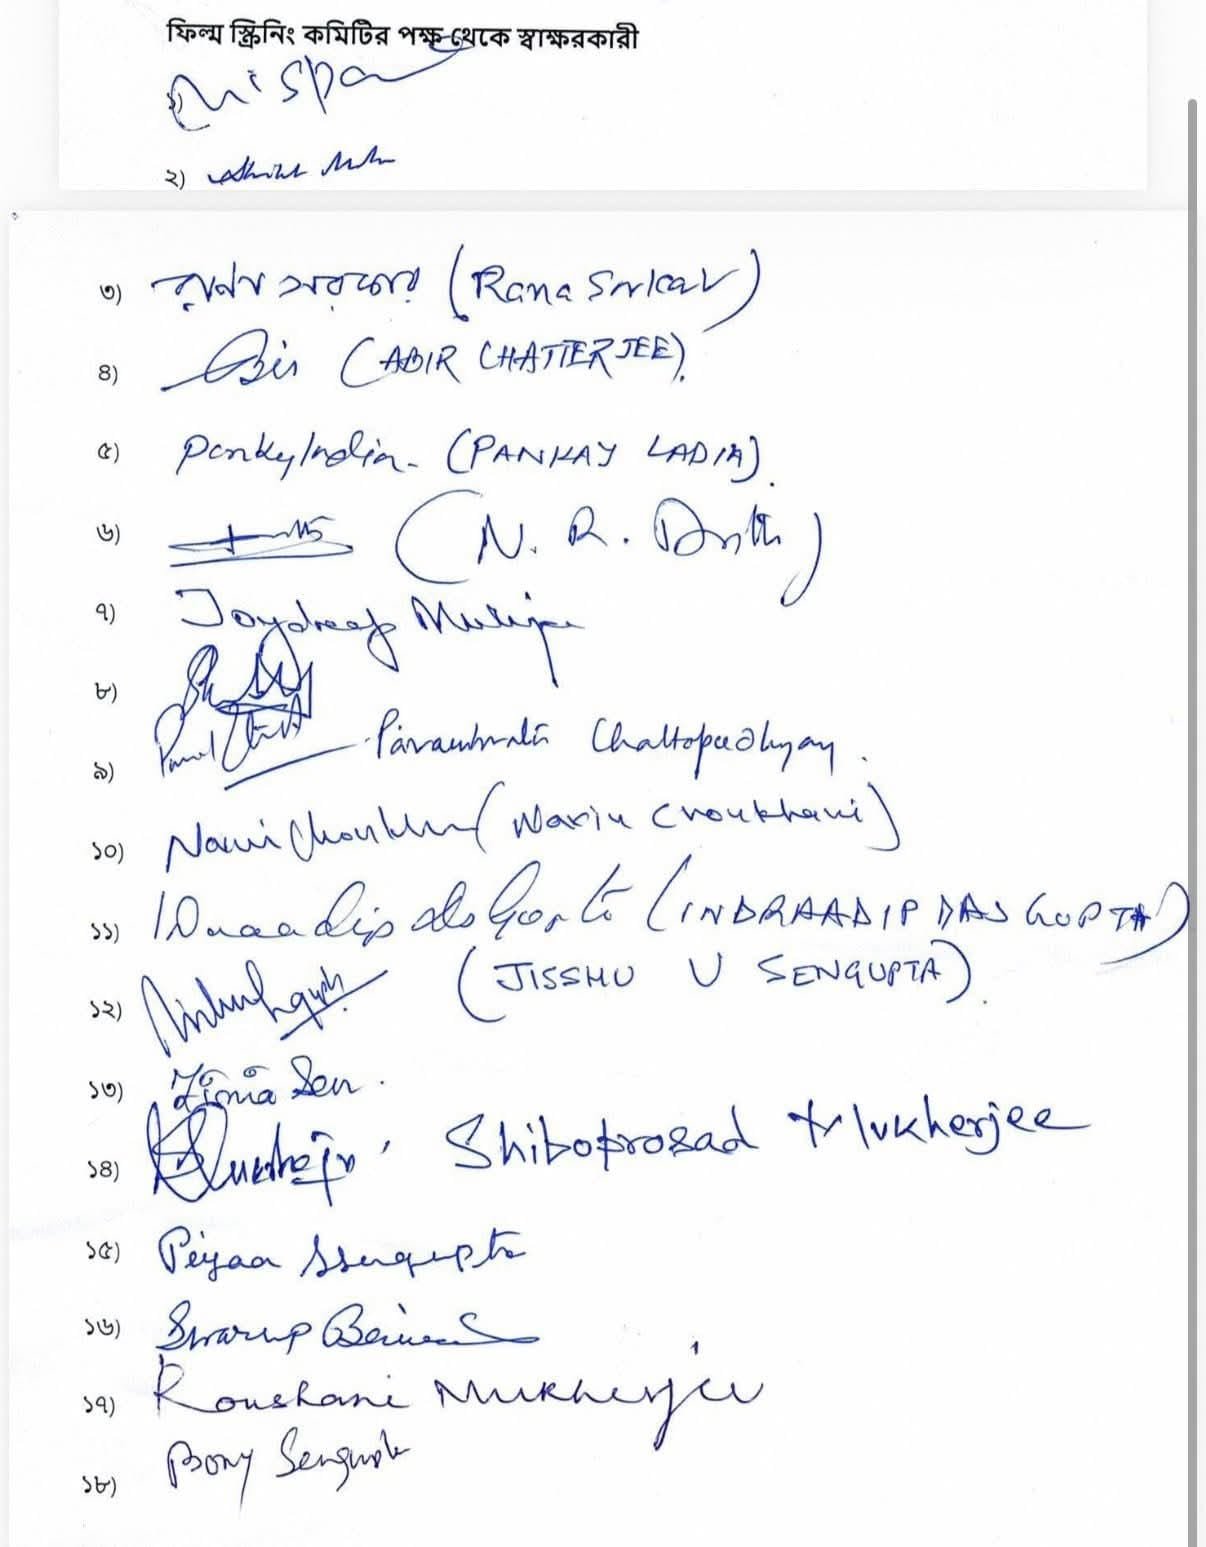 ফিল্ম স্ক্রিনিং কমিটির পক্ষ থেকে স্বাক্ষরকারী
২)
৩) রানা সরকার (Rana Sarkar)
৪) Abir (ABIR CHATTERJEE).
৫) Pankaj Ladia. (PANKAJ LADIA).
৬) (N. R.
৭) Joydeep Mukherjee
৮)
৯) Parambrata Chattopadhyay.
১০) (Narin Choukhani)
১১) (INDRAADIP DAS GUPTA)
১২) (JISSHU U SENGUPTA).
১৩) Zinia Sen.
১৪) Shiboprosad Mukherjee
১৫) Piyaa Ssengupta
১৬) Swarup Biswas
১৭) Roushani Mukherjee
১৮) Bony Sengupta